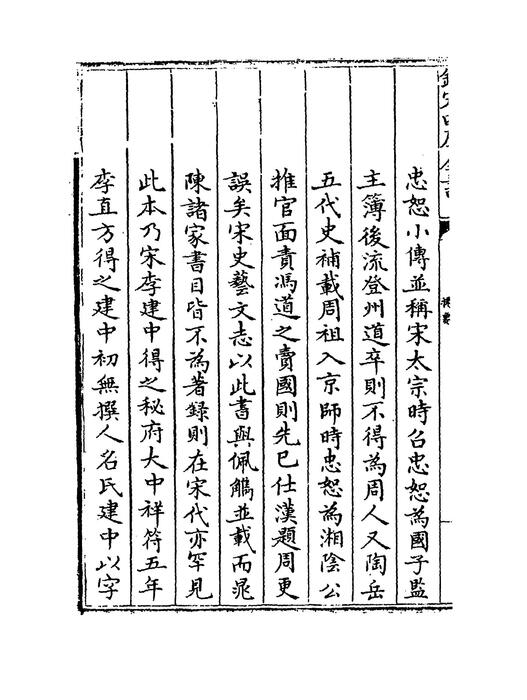 忠恕小傳並稱宋太宗時召忠恕為國子監
主簿後流登州道卒則不得為周人又陶岳
五代史補載周祖入京師時忠恕為湘陰公
推官面責馮道之賣國則先已仕漢題周更
誤矣宋史藝文志以此書與佩觿並載而晁
陳諸家書目皆不為著錄則在宋代亦罕見
此本乃宋李建中得之秘府大中祥符五年
李直方得之建中初無撰人名氏建中以字